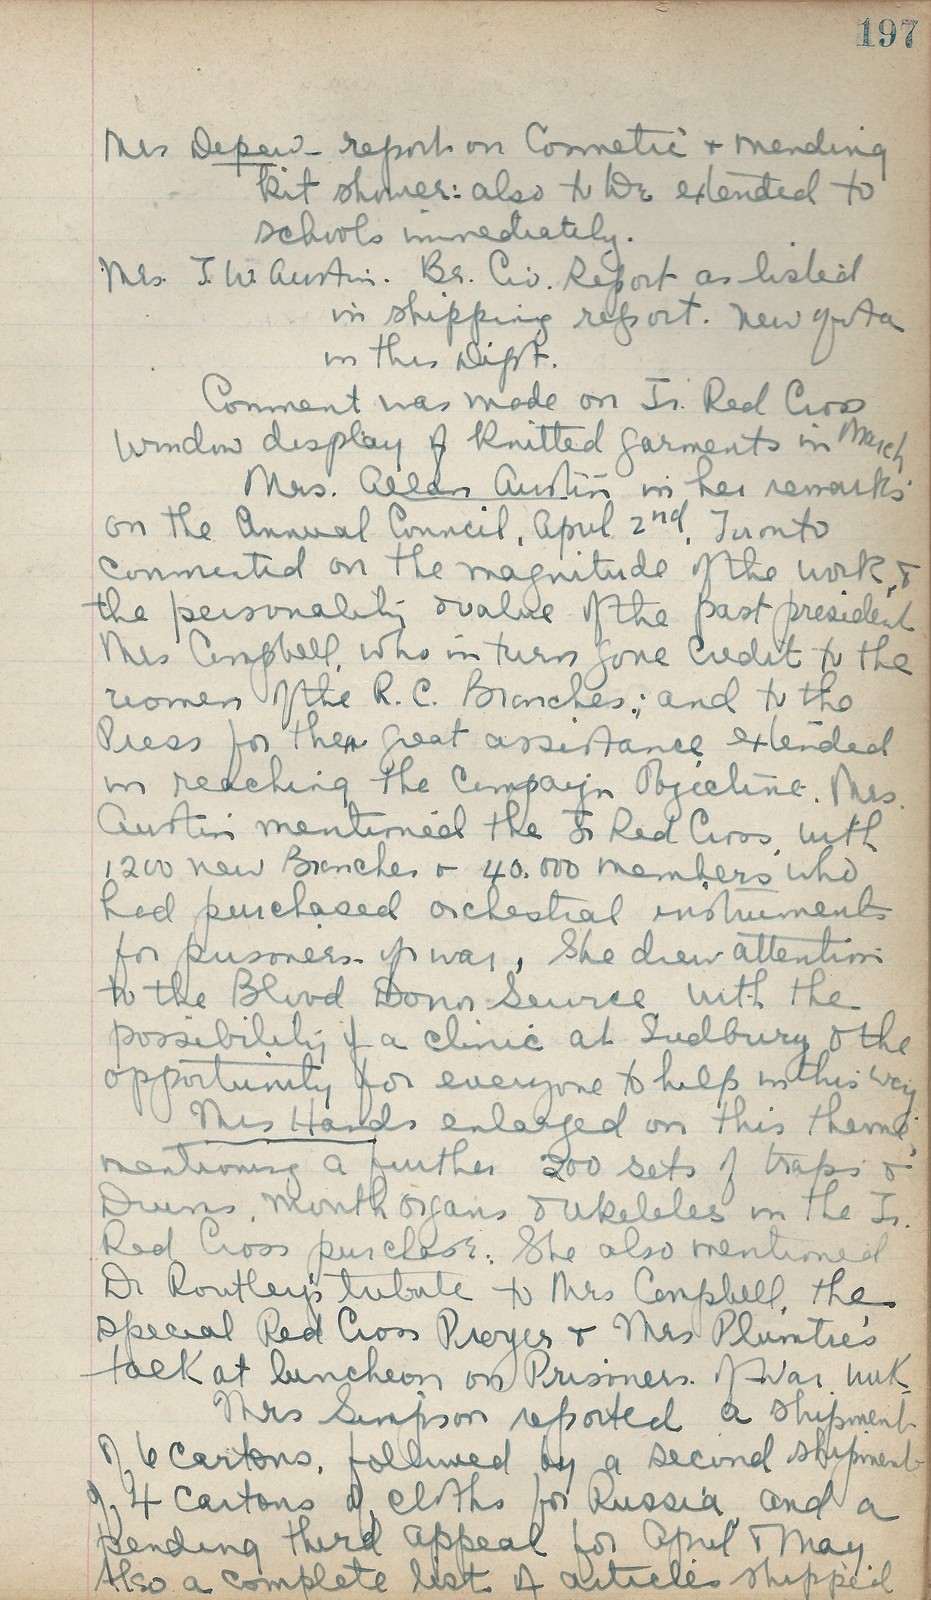 197
Mrs Depew - report on Cosmetic & mending
kit shower: also to be extended to
schools immediately.
Mrs. T. W. Austin. Br. Civ. Report as listed
in shipping report. New quota
in this Dept.
Comment was made on Jr. Red Cross
window display of knitted garments in March
Mrs. Allan Austin in her remarks
on the Annual Council, April 2nd, Toronto
commented on the magnitude of the work, &
the personality & value of the past president
Mrs Campbell, who in turn gave credit to the
women of the R. C. Branches; and to the
Press for their great assistance extended
in reaching the Campaign Objective. Mrs.
Austin mentioned the Jr Red Cross, with
1200 new Branches & 40.000 members who
had purchased orchestral instruments
for prisoners of war, She drew attention
to the Blood Donor Service with the
possibility of a clinic at Sudbury & the
opportunity for everyone to help in this way
Mrs Hands enlarged on this theme,
mentioning a further 200 sets of traps &
Drums, mouth organs & ukeleles in the Jr.
Red Cross purchase. She also mentioned
Dr Routley's tribute to Mrs Campbell, the
special Red Cross Prayer & Mrs Plumtre's
talk at luncheon on Prisoners of War work
Mrs Simpson reported a shipment
of 6 cartons, followed by a second shipment
of 4 cartons of cloths for Russia, and a
pending third appeal for April & May
Also a complete list of articles shipped